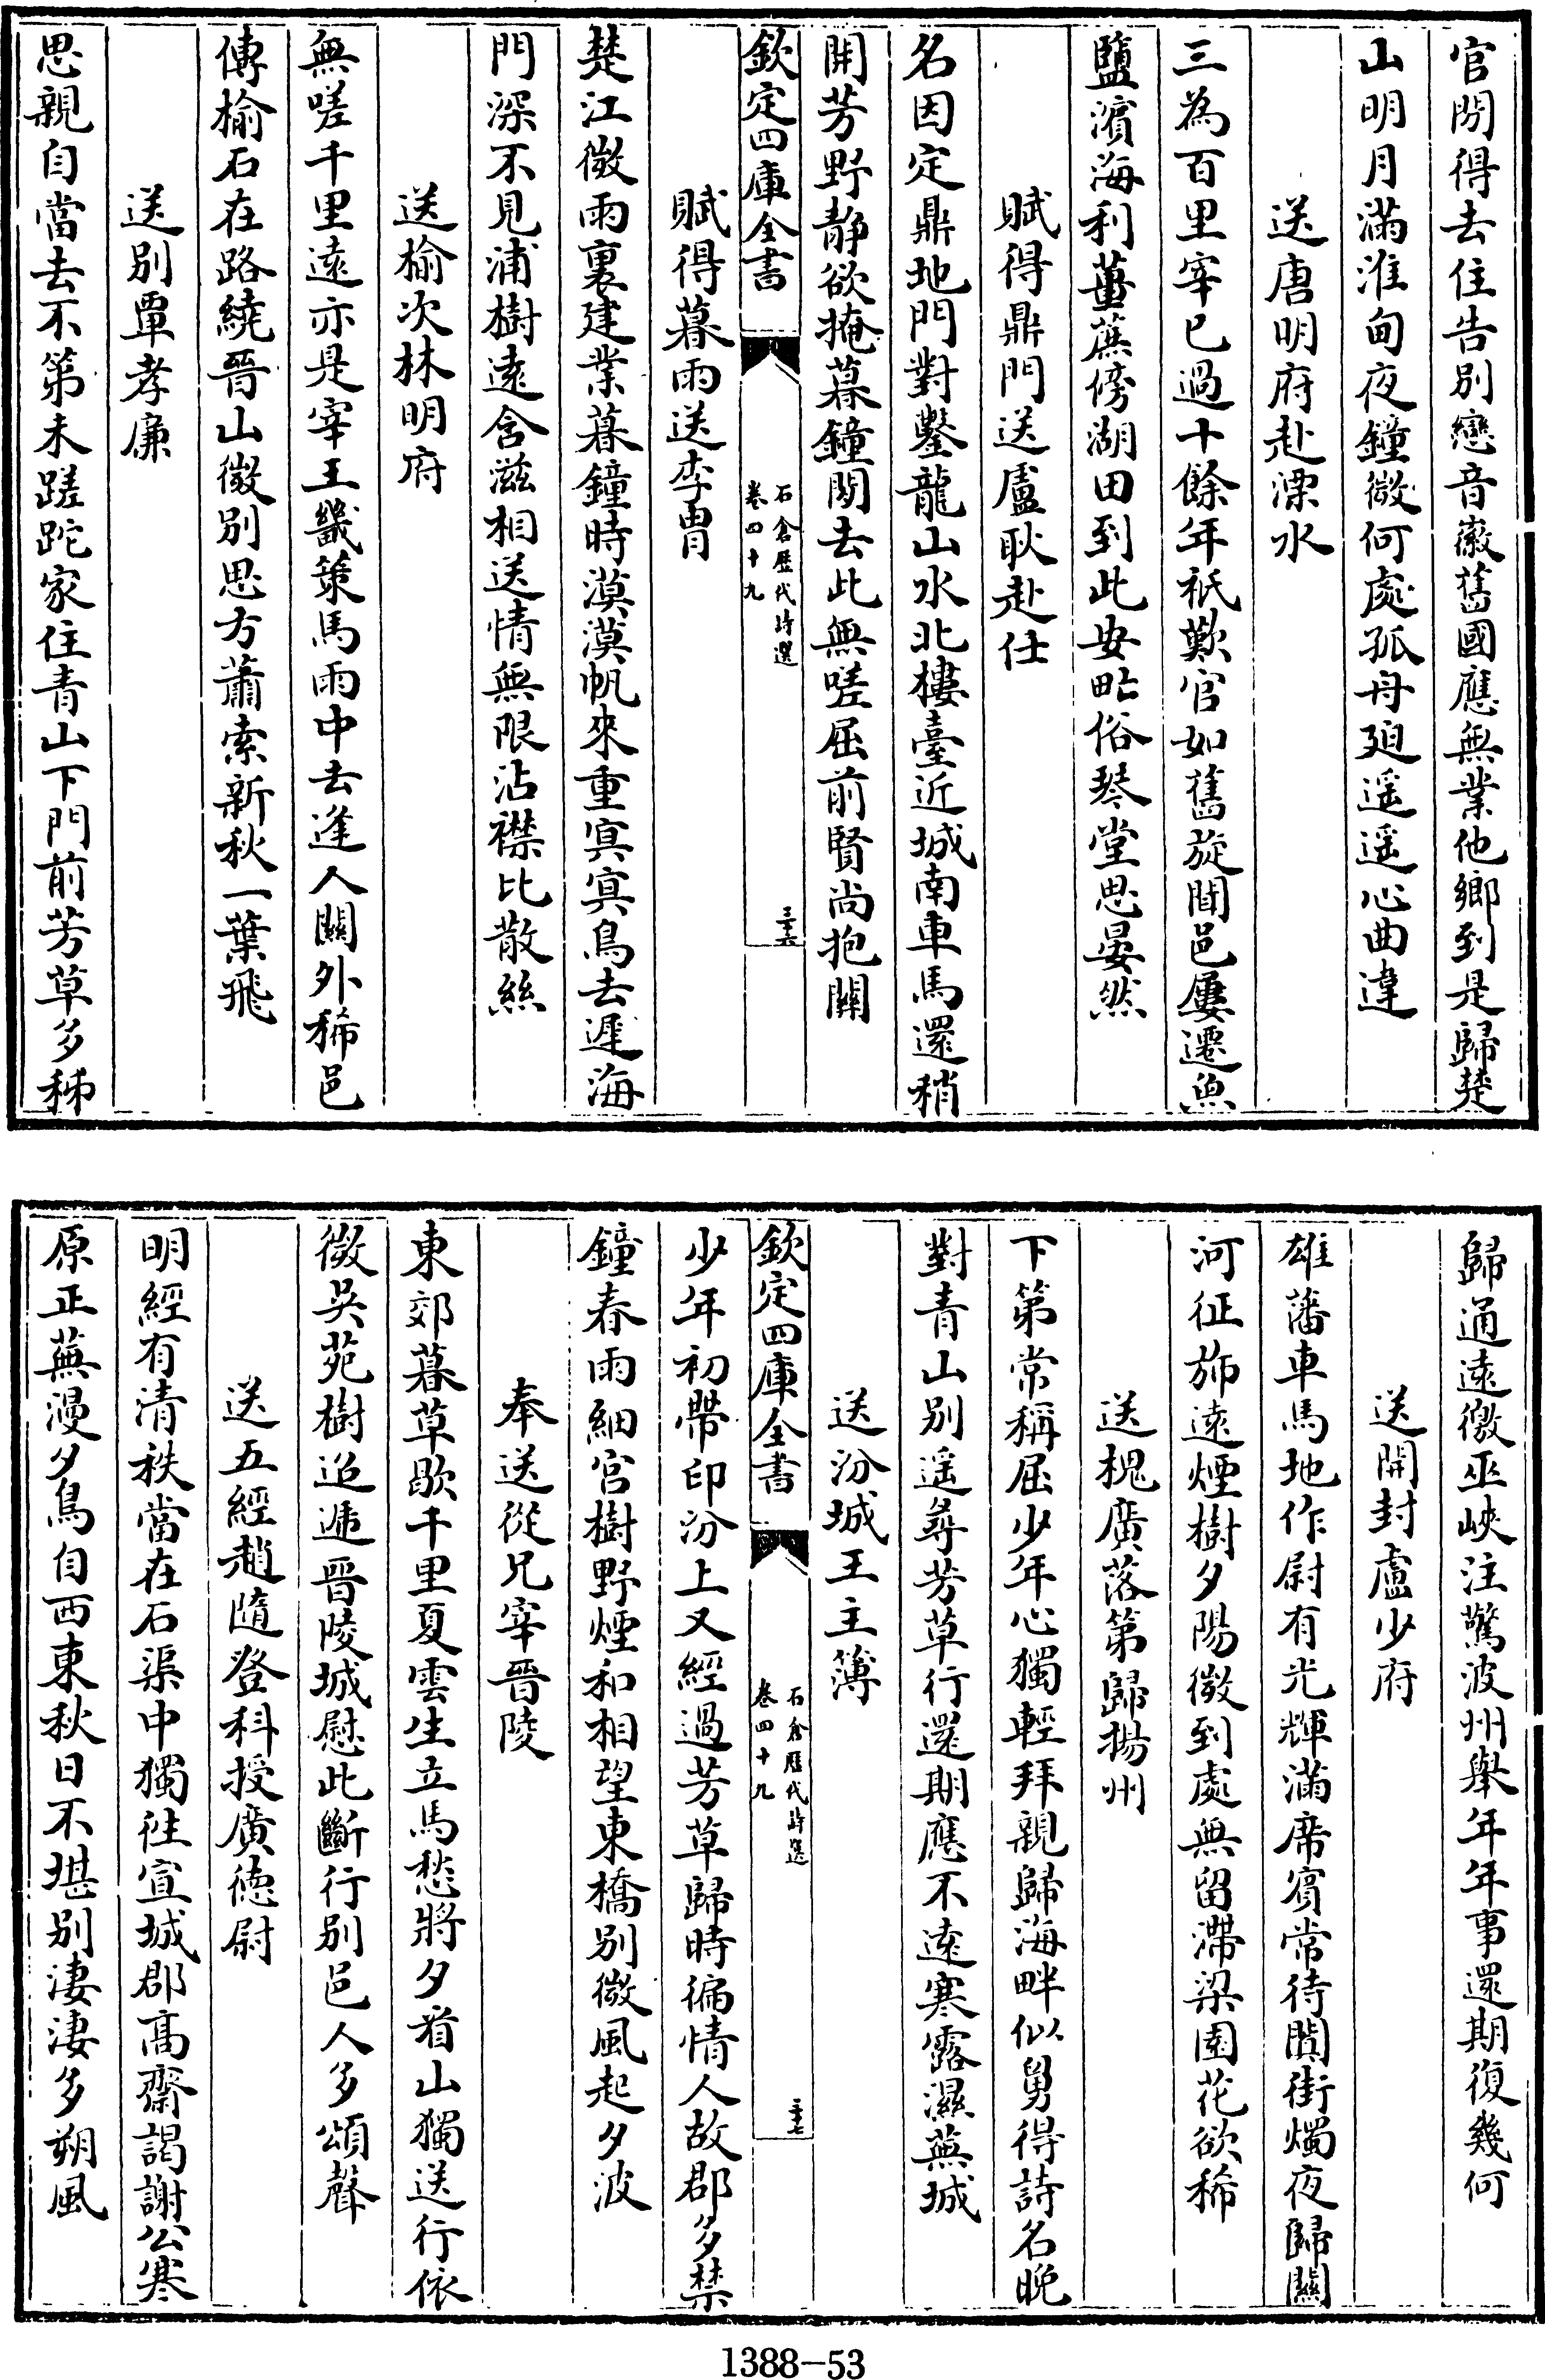 官閒得去住告別戀音徽舊國應無業他鄉到是歸楚
山明月滿淮甸夜鐘微何處孤舟廹遥遥心曲違
送唐明府赴溧水
三為百里宰已過十餘年祇歎官如舊旋聞邑屢遷魚
鹽濱海利薑蔗傍湖田到此安甿俗琴堂思晏然
賦得鼎門送盧耿赴仕
名因定鼎地門對鑿龍山水北樓臺近城南車馬還稍
開芳野静欲掩暮鐘閒去此無嗟屈前賢尚抱關
欽定四庫全書
石倉歷代詩選
卷四十九
三十六
賦得暮雨送李冑
楚江微雨裏建業暮鐘時漠漠帆來重冥冥鳥去遲海
門深不見浦樹遠含滋相送情無限沾襟比散絲
送榆次林明府
無嗟千里遠亦是宰王畿策馬雨中去逢人關外稀邑
傳榆石在路繞晉山微別思方蕭索新秋一葉飛
送別覃孝廉
思親自當去不第未蹉跎家住青山下門前芳草多秭
歸通遠徼巫峽注驚波州舉年年事還期復幾何
送開封盧少府
雄藩車馬地作尉有光輝滿席賓常待闐街燭夜歸關
河征斾遠煙樹夕陽微到處無留滯梁園花欲稀
送槐廣落第歸揚州
下第常稱屈少年心獨輕拜親歸海畔似舅得詩名晚
對青山別遥尋芳草行還期應不遠寒露濕蕪城
送汾城王主簿
欽定四庫全書
石倉歷代詩選
卷四十九
三十七
少年初帶印汾上又經過芳草歸時徧情人故郡多禁
鐘春雨細宫樹野煙和相望東橋別微風起夕波
奉送從兄宰晉陵
東郊暮草歇千里夏雲生立馬愁將夕看山獨送行依
微吳苑樹迢遞晉陵城慰此斷行別邑人多頌聲
送五經趙隨登科授廣德尉
明經有清秩當在石渠中獨往宣城郡高齋謁謝公寒
原正蕪漫夕鳥自西東秋日不堪別淒淒多朔風
1388-53